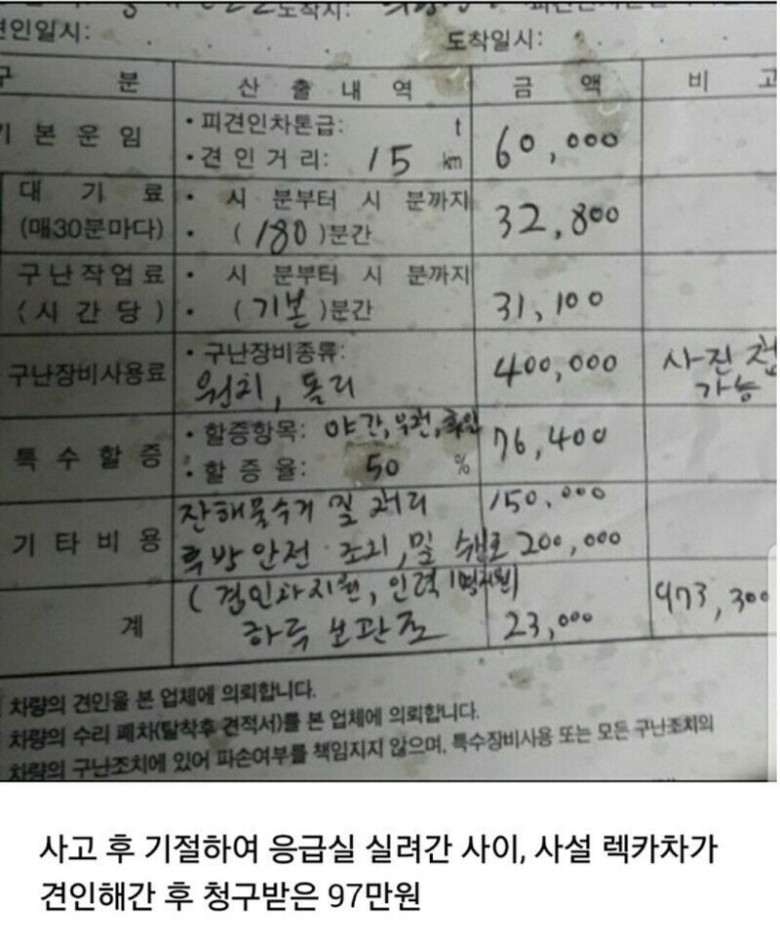 도착시:
견인일시:
도착일시:
구 분 산 출 내 역 금 액 비 고
기 본 운 임 • 피견인차톤급: t 60,000
• 견 인 거 리: 15 km
대 기 료 • 시 분부터 시 분까지 32,800
(매30분마다) • (180)분간
구 난 작 업 료 • 시 분부터 시 분까지 31,100
(시 간 당) • (기본)분간
구난장비사용료 • 구난장비종류: 400,000 사진 첩
윈치, 돌리 가능
특 수 할 증 • 할증항목: 야간, 우천, 76,400
• 할 증 율: 50 %
기 타 비 용 잔해물수거 및 처리 150,000
후방 안전 조치, 및 200,000
(견인차지원, 인력 1명지원)
계 하루 보관료 23,000 973,300
차량의 견인을 본 업체에 의뢰합니다.
차량의 수리 폐차(탈착후 견적서)를 본 업체에 의뢰합니다.
차량의 구난조치에 있어 파손여부를 책임지지 않으며, 특수장비사용 또는 모든 구난조치의
사고 후 기절하여 응급실 실려간 사이, 사설 렉카차가
견인해간 후 청구받은 97만원